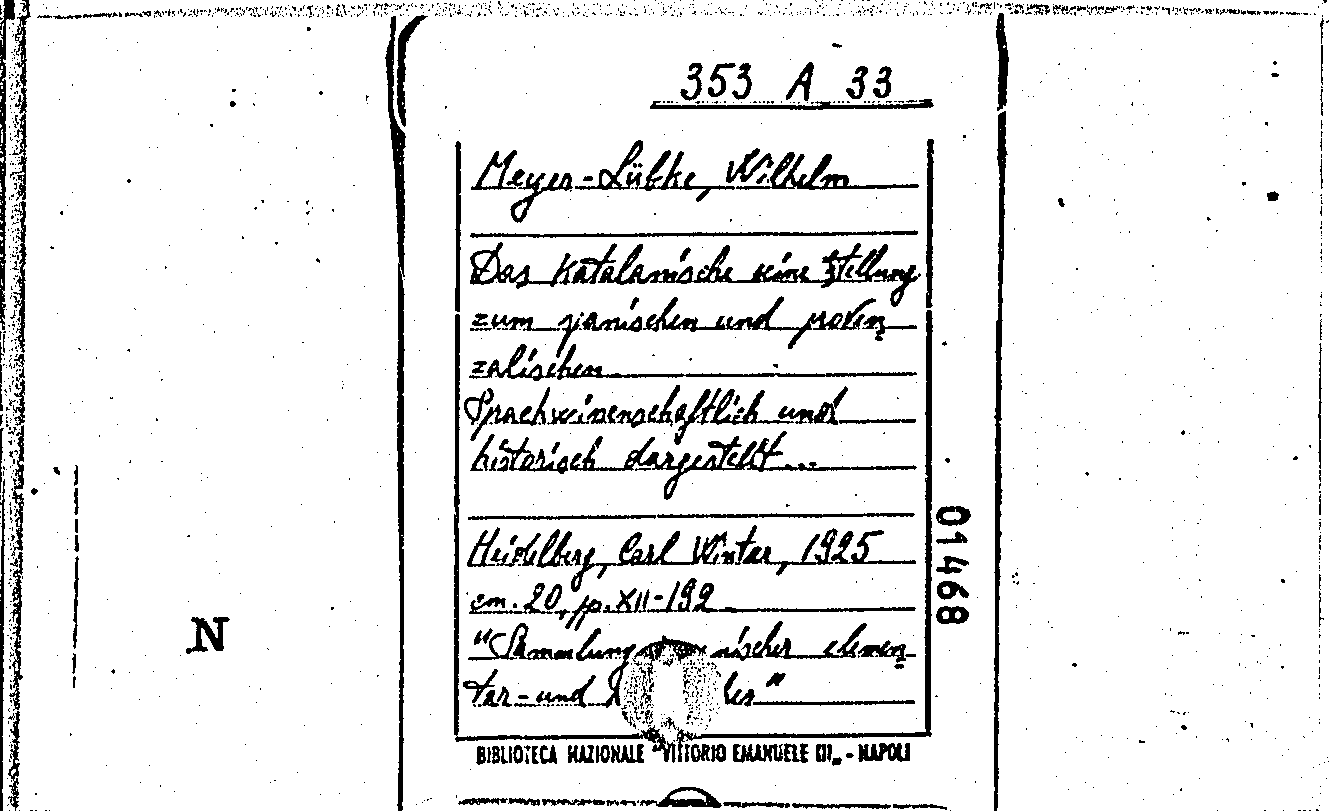 353 A 33
Meyer-Lübke, Wilhelm
Das Katalanische seine Stellung
zum spanischen und proven
zalischen
Sprachwissenschaftlich und
historisch dargestellt...
Heidelberg, Carl Winter, 1925
cm. 20, pp. XII-192
"Sammlung nischer elemen
tar-und
01468
N
BIBLIOTECA NAZIONALE "VITTORIO EMANUELE III„ - NAPOLI